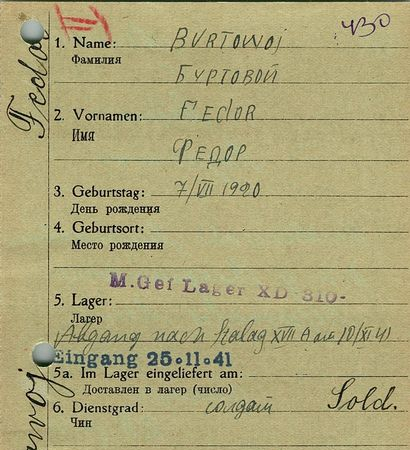 430
Fedor
1. Name: BURTOWOJ
Фамилия
БУРТОВОЙ
2. Vornamen: FEDOR
Имя
ФЕДОР
3. Geburtstag: 7/VII 1920
День рождения
4. Geburtsort:
Место рождения
M.Gef Lager XD 310-
5. Lager:
Лагер
Abgang nach Stalag XVII A am 10/XI 41
Eingang 25.11.41
5a. Im Lager eingeliefert am:
Доставлен в лагер (число)
6. Dienstgrad: солдат Sold.
Чин